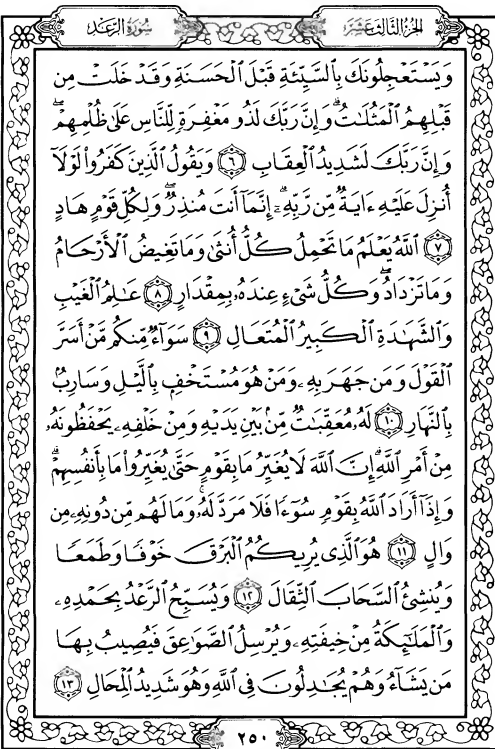 الجزء الثالث عشر
سورة الرعد
وَيَسْتَعْجِلُونَكَ بِالسَّيِّئَةِ قَبْلَ الْحَسَنَةِ وَقَدْ خَلَتْ مِن
قَبْلِهِمُ الْمَثُلَاتُ ۗ وَإِنَّ رَبَّكَ لَذُو مَغْفِرَةٍ لِّلنَّاسِ عَلَىٰ ظُلْمِهِمْ ۖ
وَإِنَّ رَبَّكَ لَشَدِيدُ الْعِقَابِ ٦ وَيَقُولُ الَّذِينَ كَفَرُوا لَوْلَا
أُنزِلَ عَلَيْهِ ءَايَةٌ مِّن رَّبِّهِ ۗ إِنَّمَا أَنتَ مُنذِرٌ ۖ وَلِكُلِّ قَوْمٍ هَادٍ
٧ اللَّهُ يَعْلَمُ مَا تَحْمِلُ كُلُّ أُنثَىٰ وَمَا تَغِيضُ الْأَرْحَامُ
وَمَا تَزْدَادُ ۖ وَكُلُّ شَيْءٍ عِندَهُ بِمِقْدَارٍ ٨ عَٰلِمُ الْغَيْبِ
وَالشَّهَٰدَةِ الْكَبِيرُ الْمُتَعَالِ ٩ سَوَآءٌ مِّنكُم مَّنْ أَسَرَّ
الْقَوْلَ وَمَن جَهَرَ بِهِ وَمَنْ هُوَ مُسْتَخْفٍ بِالَّيْلِ وَسَارِبٌ
بِالنَّهَارِ ١٠ لَهُ مُعَقِّبَٰتٌ مِّن بَيْنِ يَدَيْهِ وَمِنْ خَلْفِهِ يَحْفَظُونَهُ
مِنْ أَمْرِ اللَّهِ ۗ إِنَّ اللَّهَ لَا يُغَيِّرُ مَا بِقَوْمٍ حَتَّىٰ يُغَيِّرُوا مَا بِأَنفُسِهِمْ ۗ
وَإِذَا أَرَادَ اللَّهُ بِقَوْمٍ سُوٓءًا فَلَا مَرَدَّ لَهُ ۚ وَمَا لَهُم مِّن دُونِهِ مِن
وَالٍ ١١ هُوَ الَّذِي يُرِيكُمُ الْبَرْقَ خَوْفًا وَطَمَعًا
وَيُنشِئُ السَّحَابَ الثِّقَالَ ١٢ وَيُسَبِّحُ الرَّعْدُ بِحَمْدِهِ
وَالْمَلَٰٓئِكَةُ مِنْ خِيفَتِهِ وَيُرْسِلُ الصَّوَٰعِقَ فَيُصِيبُ بِهَا
مَن يَشَآءُ وَهُمْ يُجَٰدِلُونَ فِي اللَّهِ وَهُوَ شَدِيدُ الْمِحَالِ ١٣
٢٥٠